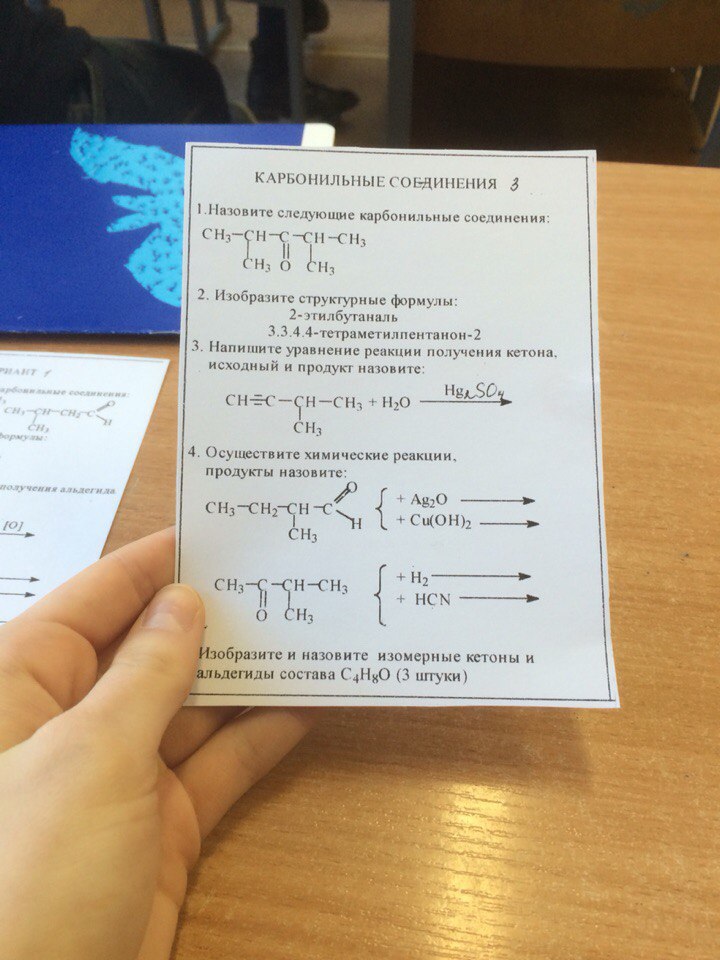 КАРБОНИЛЬНЫЕ СОЕДИНЕНИЯ 3
1.Назовите следующие карбонильные соединения:
CH₃—CH—C—CH—CH₃
CH₃ O CH₃
2. Изобразите структурные формулы:
2-этилбутаналь
3.3.4.4-тетраметилпентанон-2
3. Напишите уравнение реакции получения кетона,
исходный и продукт назовите:
Hg₂SO₄
CH≡C—CH—CH₃ + H₂O
CH₃
4. Осуществите химические реакции,
продукты назовите:
O
CH₃—CH₂—CH—C
H
CH₃
+ Ag₂O
+ Cu(OH)₂
CH₃—C—CH—CH₃
O CH₃
+ H₂
+ HCN
Изобразите и назовите изомерные кетоны и
альдегиды состава C₄H₈O (3 штуки)
РИАНТ 1
карбонильные соединения:
CH₃—CH—CH₂—C
O
H
CH₃
формулы:
получения альдегида
[O]